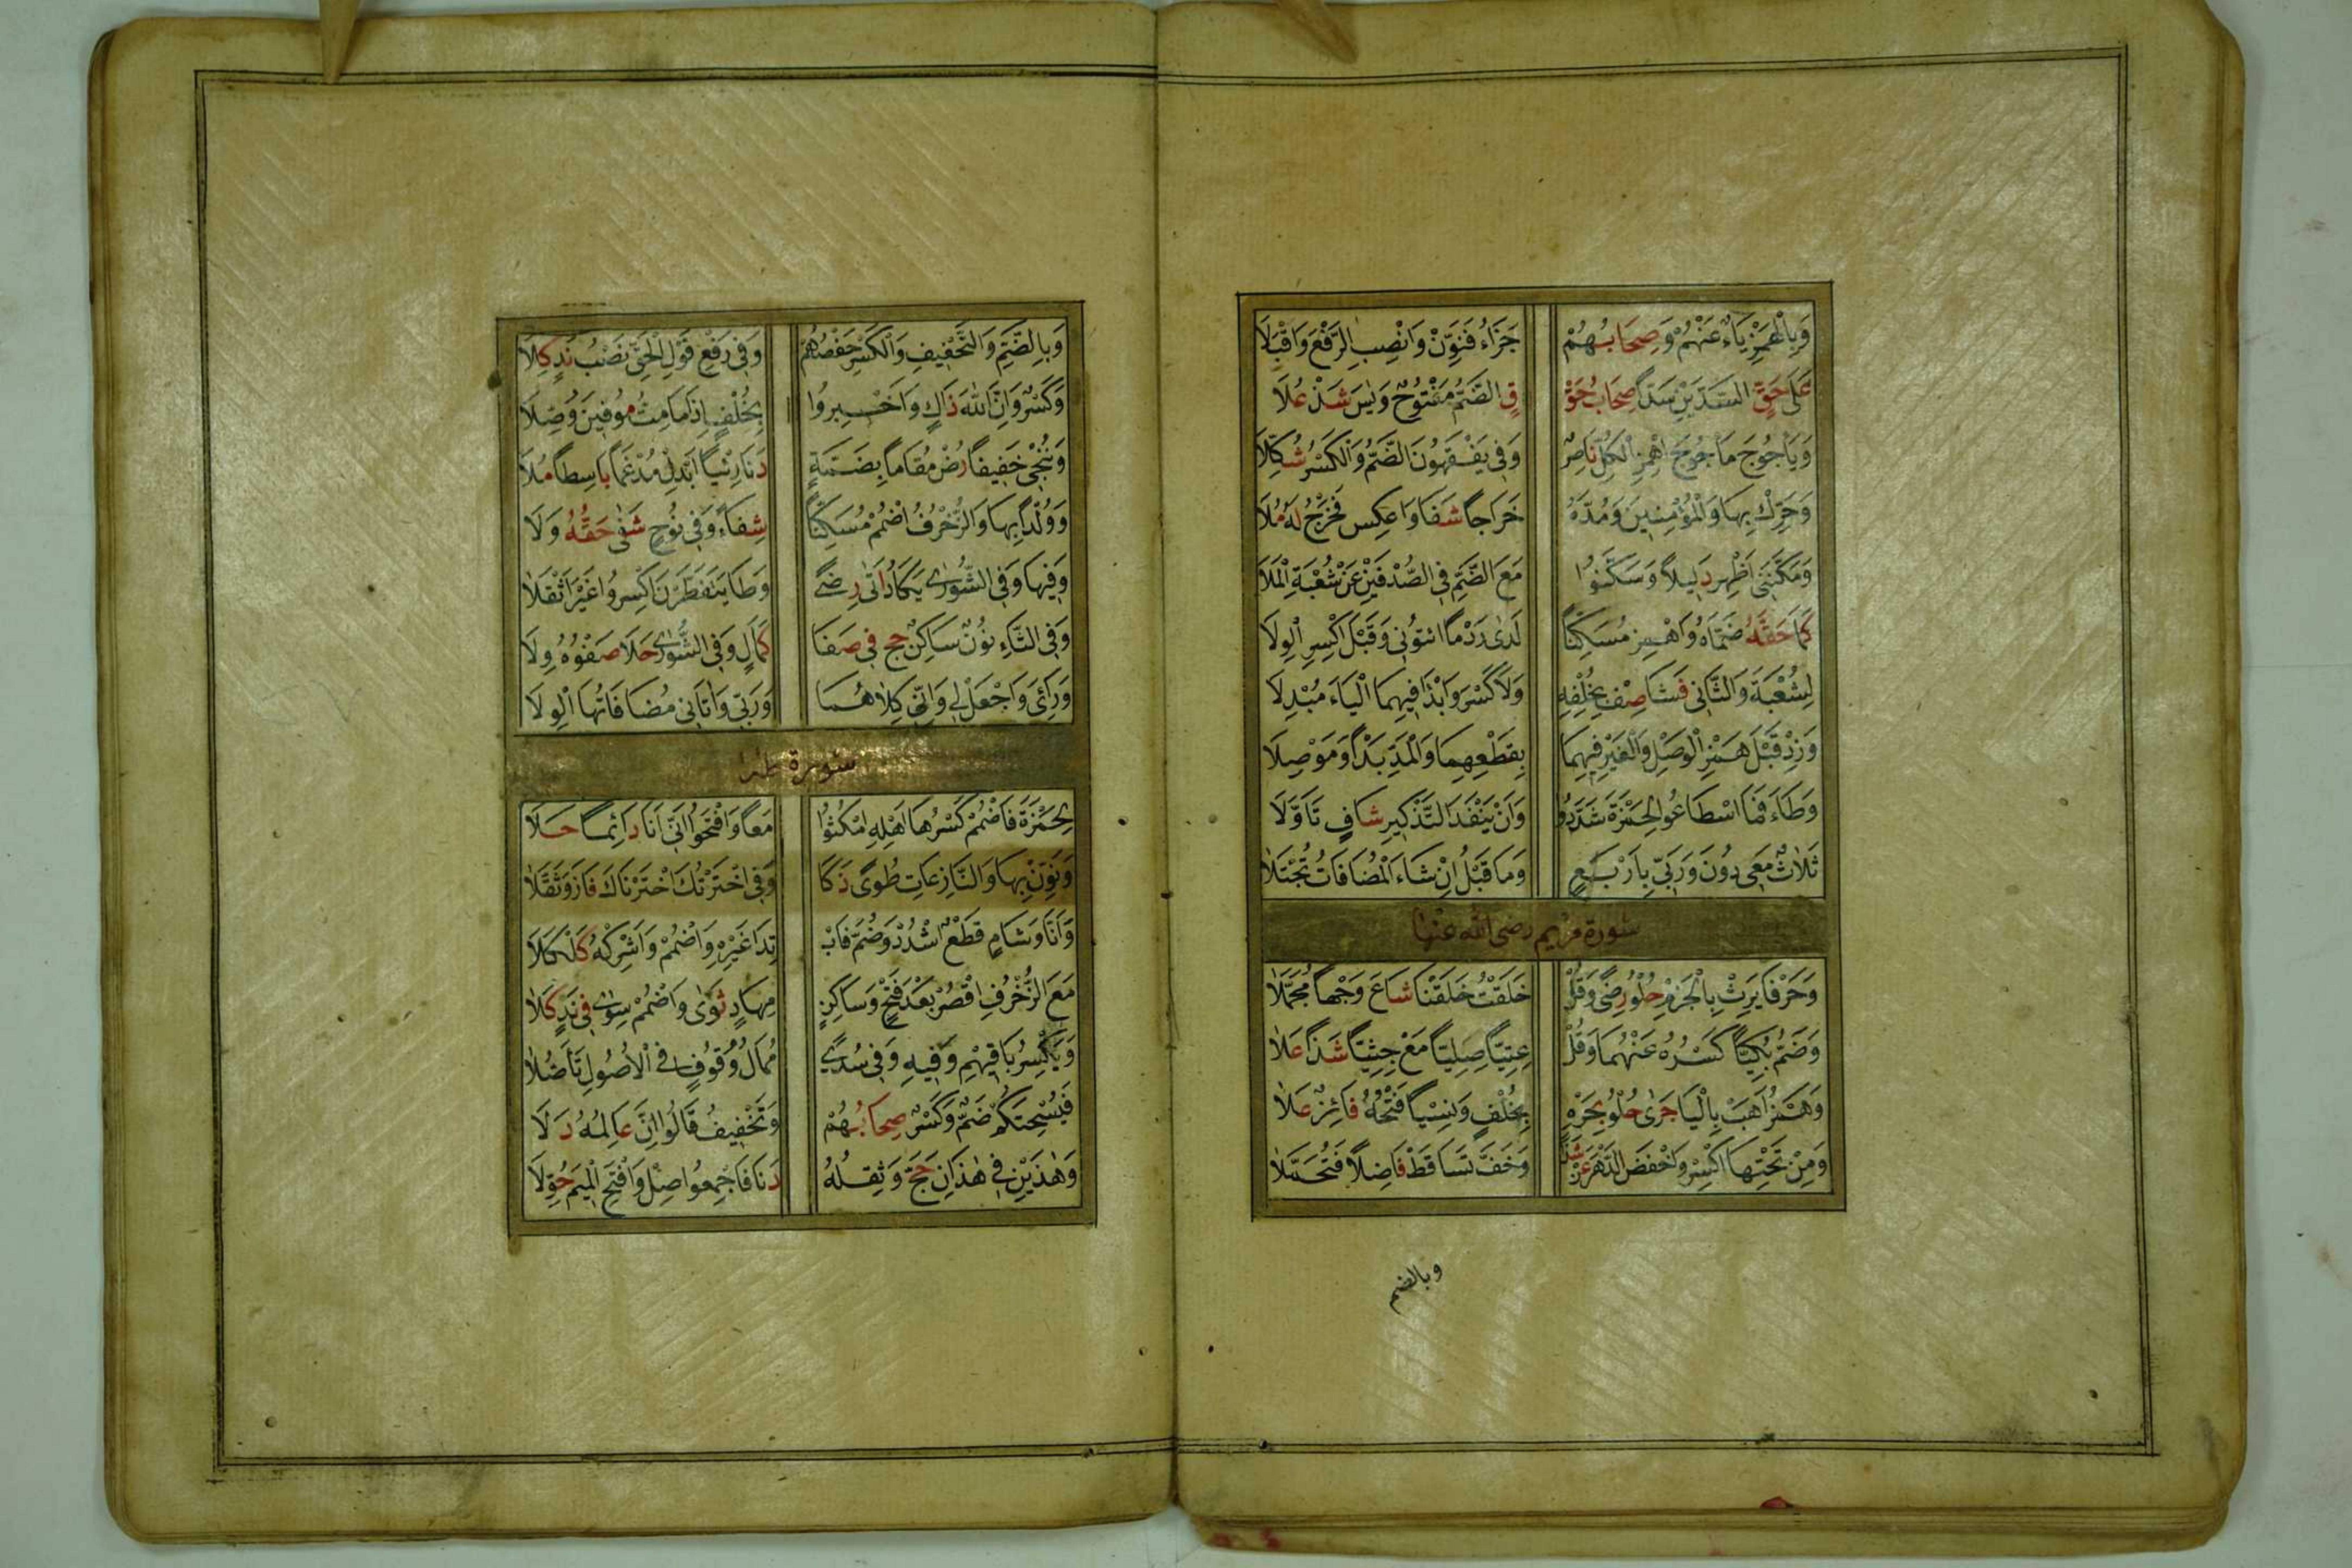 وَبِالْهَمْزِ يَاءٌ عَنْهُمْ وَصِحَابُهُمْ جَزَاءُ فَنَوِّنْ وَانْصِبِ الرَّفْعَ وَاقْبَلَا
عَلَى حَقٍّ السَّدَّيْنِ سَدًّا صِحَابُ حَقْ قٍ الضَّمُّ مَفْتُوحٌ وَيٰسَ شَذْ عُلَا
وَيَأْجُوجَ مَأْجُوجَ اهْمِزِ الْكُلَّ نَاصِرًا وَفِي يَفْقَهُونَ الضَّمُّ وَالْكَسْرُ شُكِّلَا
وَحَرِّكْ بِهَا وَالْمُؤْمِنِينَ وَمُدَّهُ خَرَاجًا شَفَا وَاعْكِسْ فَخَرْجُ لَهُ مُلَا
وَمَكَّنَنِي أَظْهِرْ دَلِيلًا وَسَكَّنُوا مَعَ الضَّمِّ فِي الصُّدْفَيْنِ عَنْ شُعْبَةَ الْمَلَا
كَمَا حَقَّهُ ضَمَّاهُ وَاهْمِزْ مُسَكِّنًا لَدَى رَدْمًا ائْتُونِي وَقَبْلَ اكْسِرِ الْوِلَا
لِشُعْبَةَ وَالثَّانِي فَشَا صِفْ بِخُلْفِهِ وَلَا كَسْرَ وَابْدَأْ فِيهِمَا الْيَاءَ مُبْدِلَا
وَزِدْ قَبْلُ هَمْزَ الْوَصْلِ وَالْغَيْرُ فِيهِمَا بِقَطْعِهِمَا وَالْمَدِّ بَدْأً وَمَوْصِلَا
وَطَاءَ فَمَا اسْطَاعُوا لِحَمْزَةَ شَدَّدُوا وَأَنْ يَنْفَدَ التَّذْكِيرُ شَافٍ تَأَوَّلَا
ثَلَاثٌ مَعِي دُونِي وَرَبِّي بِأَرْبَعٍ وَمَا قَبْلُ إِنْ شَاءَ الْمُضَافَاتُ تُجْتَلَا
سُورَة مَرْيَم رضى الله عنها
وَحَرْفَا يَرِثْ بِالْجَزْمِ حُلْوُ رِضًى وَقُلْ خَلَقْتُ خَلَقْنَا شَاعَ وَجْهًا مُجَمَّلَا
وَضَمُّ بُكِيًّا كَسْرُهُ عَنْهُمَا وَقُلْ عِتِيًّا صِلِيًّا مَعْ جِثِيًّا شَذًا عَلَا
وَهَمْزُ أَهَبْ بِالْيَا جَرَى حُلْوُ بَحْرِهِ بِخُلْفٍ وَنِسْيًا فَتْحُهُ فَائِزٌ عَلَا
وَمِنْ تَحْتِهَا اكْسِرْ وَاخْفِضِ الدَّهْرَ عَنْ شَذًا وَخَفَّ تَسَاقَطْ فَاضِلًا فَتُحُمِّلَا
وبالضم
وَبِالضَّمِّ وَالتَّخْفِيفِ وَالْكَسْرِ حَفْصُهُمْ وَفِي رَفْعِ قَوْلُ الْحَقِّ نَصْبُ نَدٍ كَلَا
وَكَسْرُ وَأَنَّ اللهَ ذَاكٍ وَأَخْبِرُوا بِخُلْفٍ إِذَا مَا مِتُّ مُوفِينَ وُصَّلَا
وَنُنْجِي خَفِيفًا رُضْ مُقَامًا بِضَمِّهِ دَنَا رِئْيًا ابْدِلْ مُدْغِمًا بَاسِطًا مُلَا
وَوُلْدًا بِهَا وَالزُّخْرُفِ اضْمُمْ مُسَكِّنًا شِفَاءً وَفِي نُوحٍ شَفَى حَقُّهُ وَلَا
وَفِيهَا وَفِي الشُّورَى يَكَادُ أَتَى رِضًى وَطَا يَتَفَطَّرْنَ اكْسِرُوا غَيْرَ أَثْقَلَا
وَفِي التَّاءِ نُونٌ سَاكِنٌ حَجَّ فِي صَفَا كَمَالٍ وَفِي الشُّورَى حَلَا صَفْوُهُ وِلَا
وَرَائِيَ وَاجْعَلْ لِي وَإِنِّي كِلَاهُمَا وَرَبِّي وَآتَانِي مُضَافَاتُهَا الْوِلَا
سورة طه
لِحَمْزَةَ فَاضْمُمْ كَسْرَهَا أَهْلِهِ امْكُثُوا مَعًا وَافْتَحُوا إِنِّي أَنَا دَائِمًا حَلَا
وَنَوِّنْ بِهَا وَالنَّازِعَاتِ طُوًى ذَكَا وَفِي اخْتَرْتُكَ اخْتَرْنَاكَ فَازَ وَثَقَّلَا
وَأَنَّا وَشَامٍ قَطْعُ اشْدُدْ وَضُمَّ فِي ابْـ تِدَا غَيْرِهِ وَاضْمُمْ وَأَشْرِكْهُ كَلْكَلَا
مَعَ الزُّخْرُفِ اقْصُرْ بَعْدَ فَتْحٍ وَسَاكِنٍ مِهَادًا ثَوَى وَاضْمُمْ سِوًى فِي نَدٍ كَلَا
وَيَكْسِرُ بَاقِيهِمْ وَفِيهِ وَفِي سُدًى مُمَالُ وُقُوفٍ فِي الْأُصُولِ تَأَصَّلَا
فَيُسْحِتَكُمْ ضَمٌّ وَكَسْرٌ صِحَابُهُمْ وَتَخْفِيفُ قَالُوا إِنَّ عَالِمُهُ دَلَا
وَهٰذَيْنِ فِي هٰذَانِ حَجَّ وَثِقْلُهُ دَنَا فَاجْمَعُوا صِلْ وَافْتَحِ الْمِيمَ حُوَّلَا